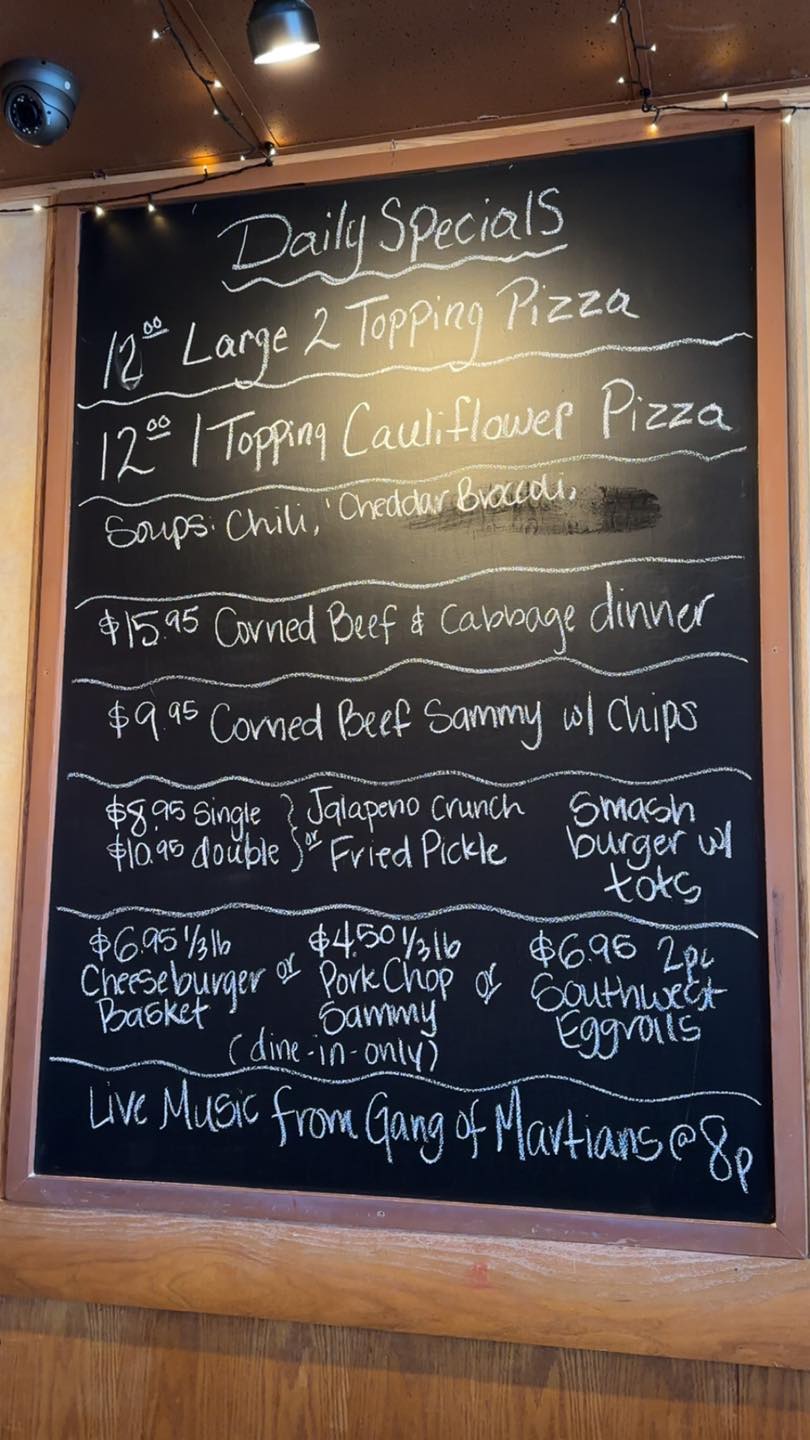 Daily Specials
12⁰⁰ Large 2 Topping Pizza
12⁰⁰ 1 Topping Cauliflower Pizza
Soups: Chili, Cheddar Broccoli,
$15.95 Corned Beef & Cabbage dinner
$9.95 Corned Beef Sammy w/ Chips
$8.95 Single } Jalapeno Crunch
$10.95 double } or Fried Pickle
Smash
burger w/
tots
$6.95 1/3 lb
Cheeseburger
Basket
or
$4.50 1/3 lb
Pork Chop
Sammy
or
$6.95 2pc
Southwest
Eggrolls
(dine-in-only)
Live Music from Gang of Martians @ 8p